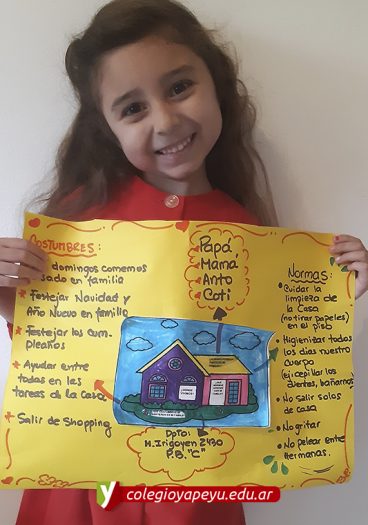 COSTUMBRES:
domingos comemos
sado en familia
Festejar Navidad y
Año Nuevo en familia
Festejar los cum-
pleaños
Ayudar entre
todas en las
tareas de la casa
Salir de Shopping
Papá,
Mamá
Anto
Coti
Dpto:
H. Irigoyen 2430
P.B. "C"
Normas:
Cuidar la
limpieza de
la Casa
(no tirar papeles)
en el piso
Higienizar todos
los días nuestro
cuerpo
(ej: cepillar los
dientes, bañarnos)
No salir solas
de casa
No gritar
No pelear entre
hermanas.
colegioyapeyu.edu.ar